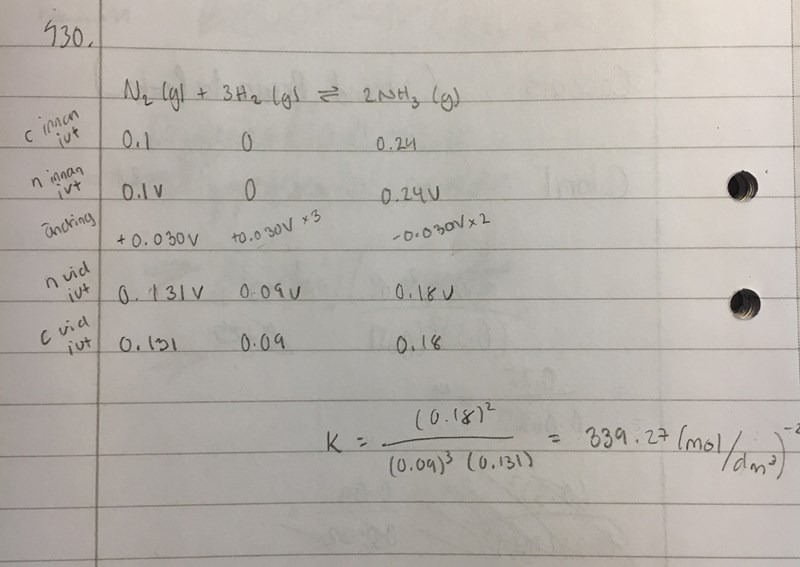 430.
N₂ (g) + 3H₂ (g) ⇌ 2NH₃ (g)
c innan jvt 0.1 0 0.24
n innan jvt 0.1v 0 0.24v
ändring +0.030v +0.030v ×3 -0.030v×2
n vid jvt 0.131v 0.09v 0.18v
c vid jvt 0.131 0.09 0.18
K = (0.18)² / (0.09)³ (0.131) = 339.27 (mol/dm³)⁻²